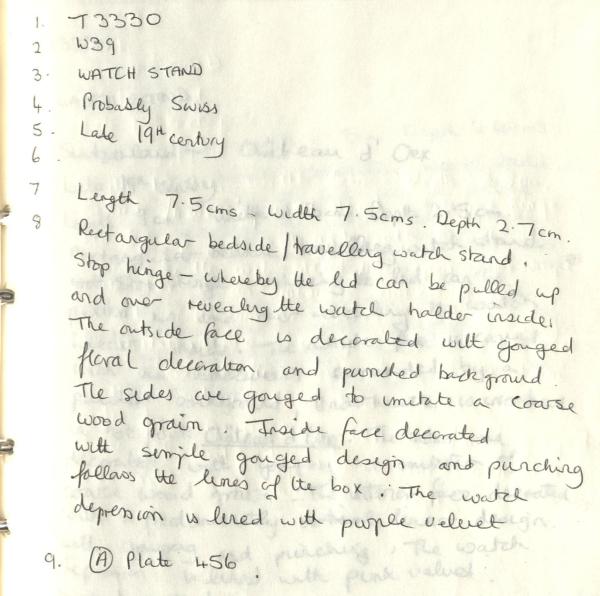 1. T 3330
2 W39
3. WATCH STAND
4. Probably Swiss
5. Late 19th century
6.
7 Length 7.5cms. Width 7.5cms. Depth 2.7cm.
8 Rectangular bedside/travelling watch stand.
Stop hinge – whereby the lid can be pulled up
and over revealing the watch holder inside.
The outside face is decorated with gouged
floral decoration and punched background.
The sides are gouged to imitate a coarse
wood grain. Inside face decorated
with simple gouged design and punching
follows the lines of the box. The watch
depression is lined with purple velvet
9. (A) Plate 456.